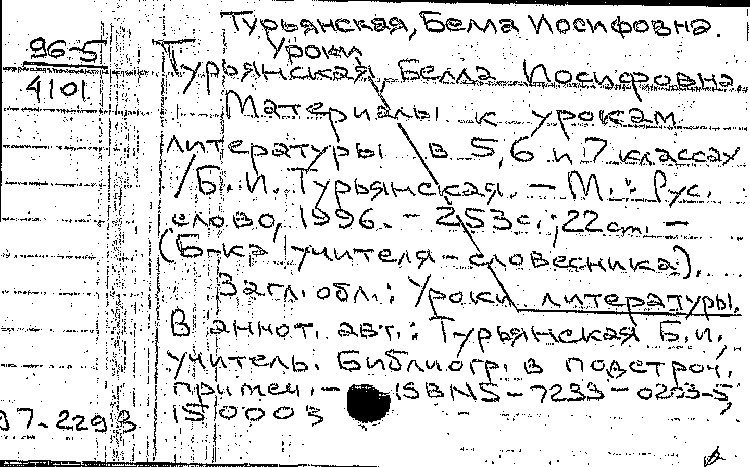 Турьянская, Белла Иосифовна.
Уроки
96-5
4101
Турьянская, Белла Иосифовна.
Материалы к урокам
литературы в 5,6 и 7 классах
/Б.И. Турьянская. — М.: Рус.
слово, 1996. - 253с.; 22cm. —
(Б-кр учителя-словесника).
Загл. обл.: Уроки литературы.
В аннот. авт.: Турьянская Б.И.,
учитель. Библиогр. в подстроч.
примеч. — ISBN5-7233-0203-5,
15000э
97-2293